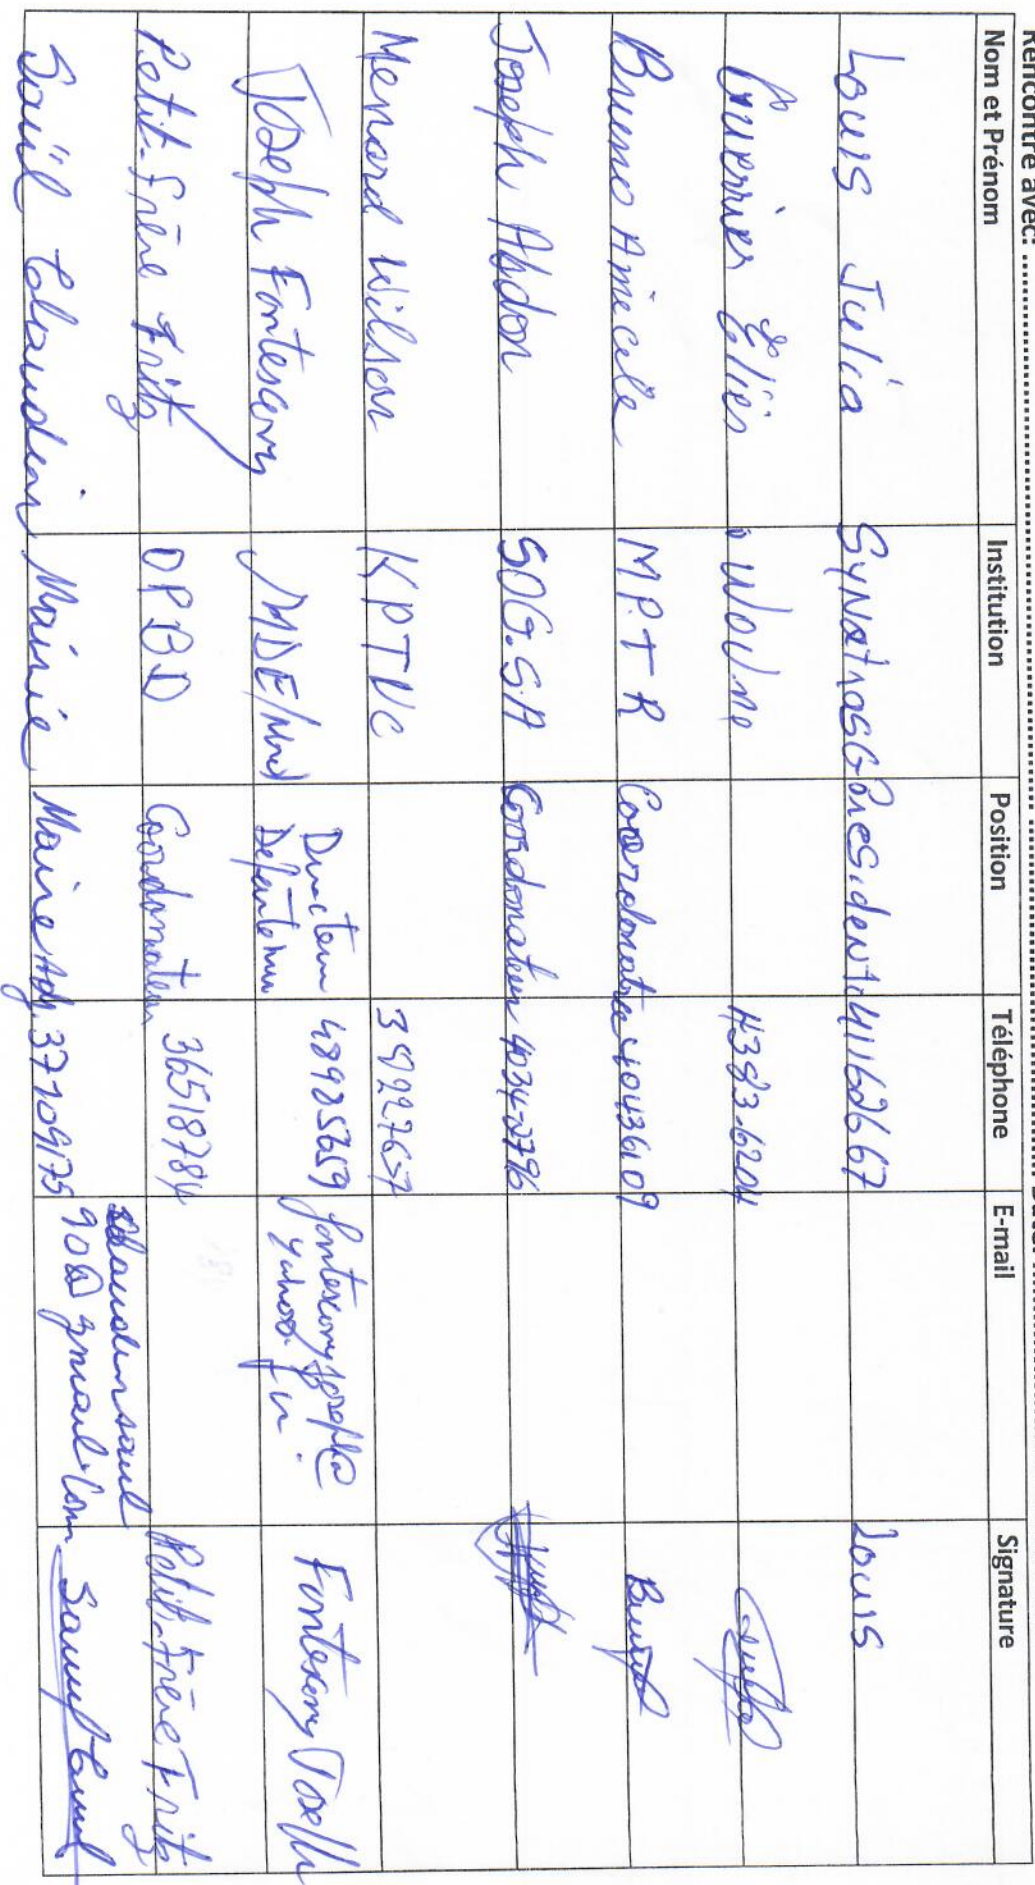 Rencontre avec: ........................ Date: ............
Nom et Prénom Institution Position Téléphone E-mail Signature
Louis Julia SYNATRASG President 41162667 Louis
Guerrier Élies 4383-6204
Bruno Amicile M.P.T.R Coordonatrice 40436109
Joseph Abdon SOG.S.A Cordonateur 4034-2796
Menard Wilson KPTVC
Joseph Fontescony MDE/ Directeur 48985659 yahoo.fr Joseph
Petit-frère Fritz OPBD Coordonateur 36518784 Petit-Frère Fritz
Saül Claudin Mairie Maire Adj. 37709175 claudinsaul
90@gmail.com